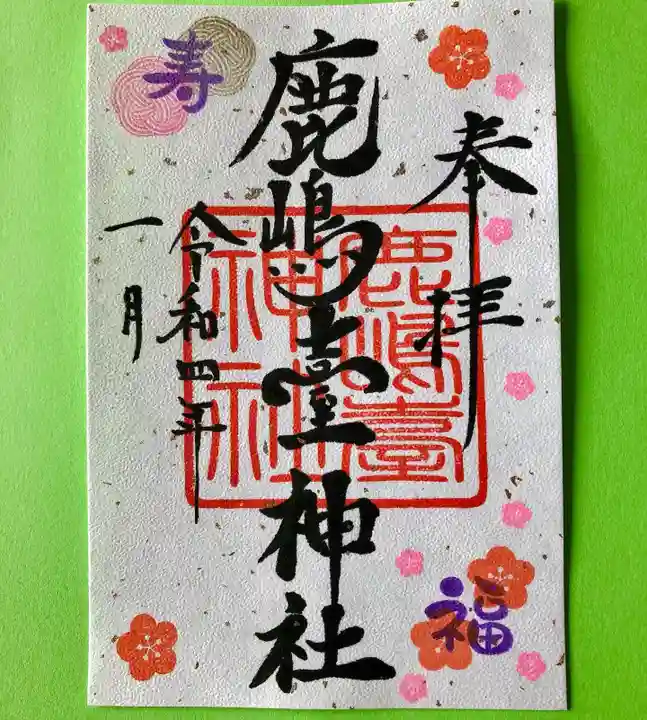 奉拝
鹿嶋臺神社
令和四年
一月
寿
福
鹿嶋臺
神社